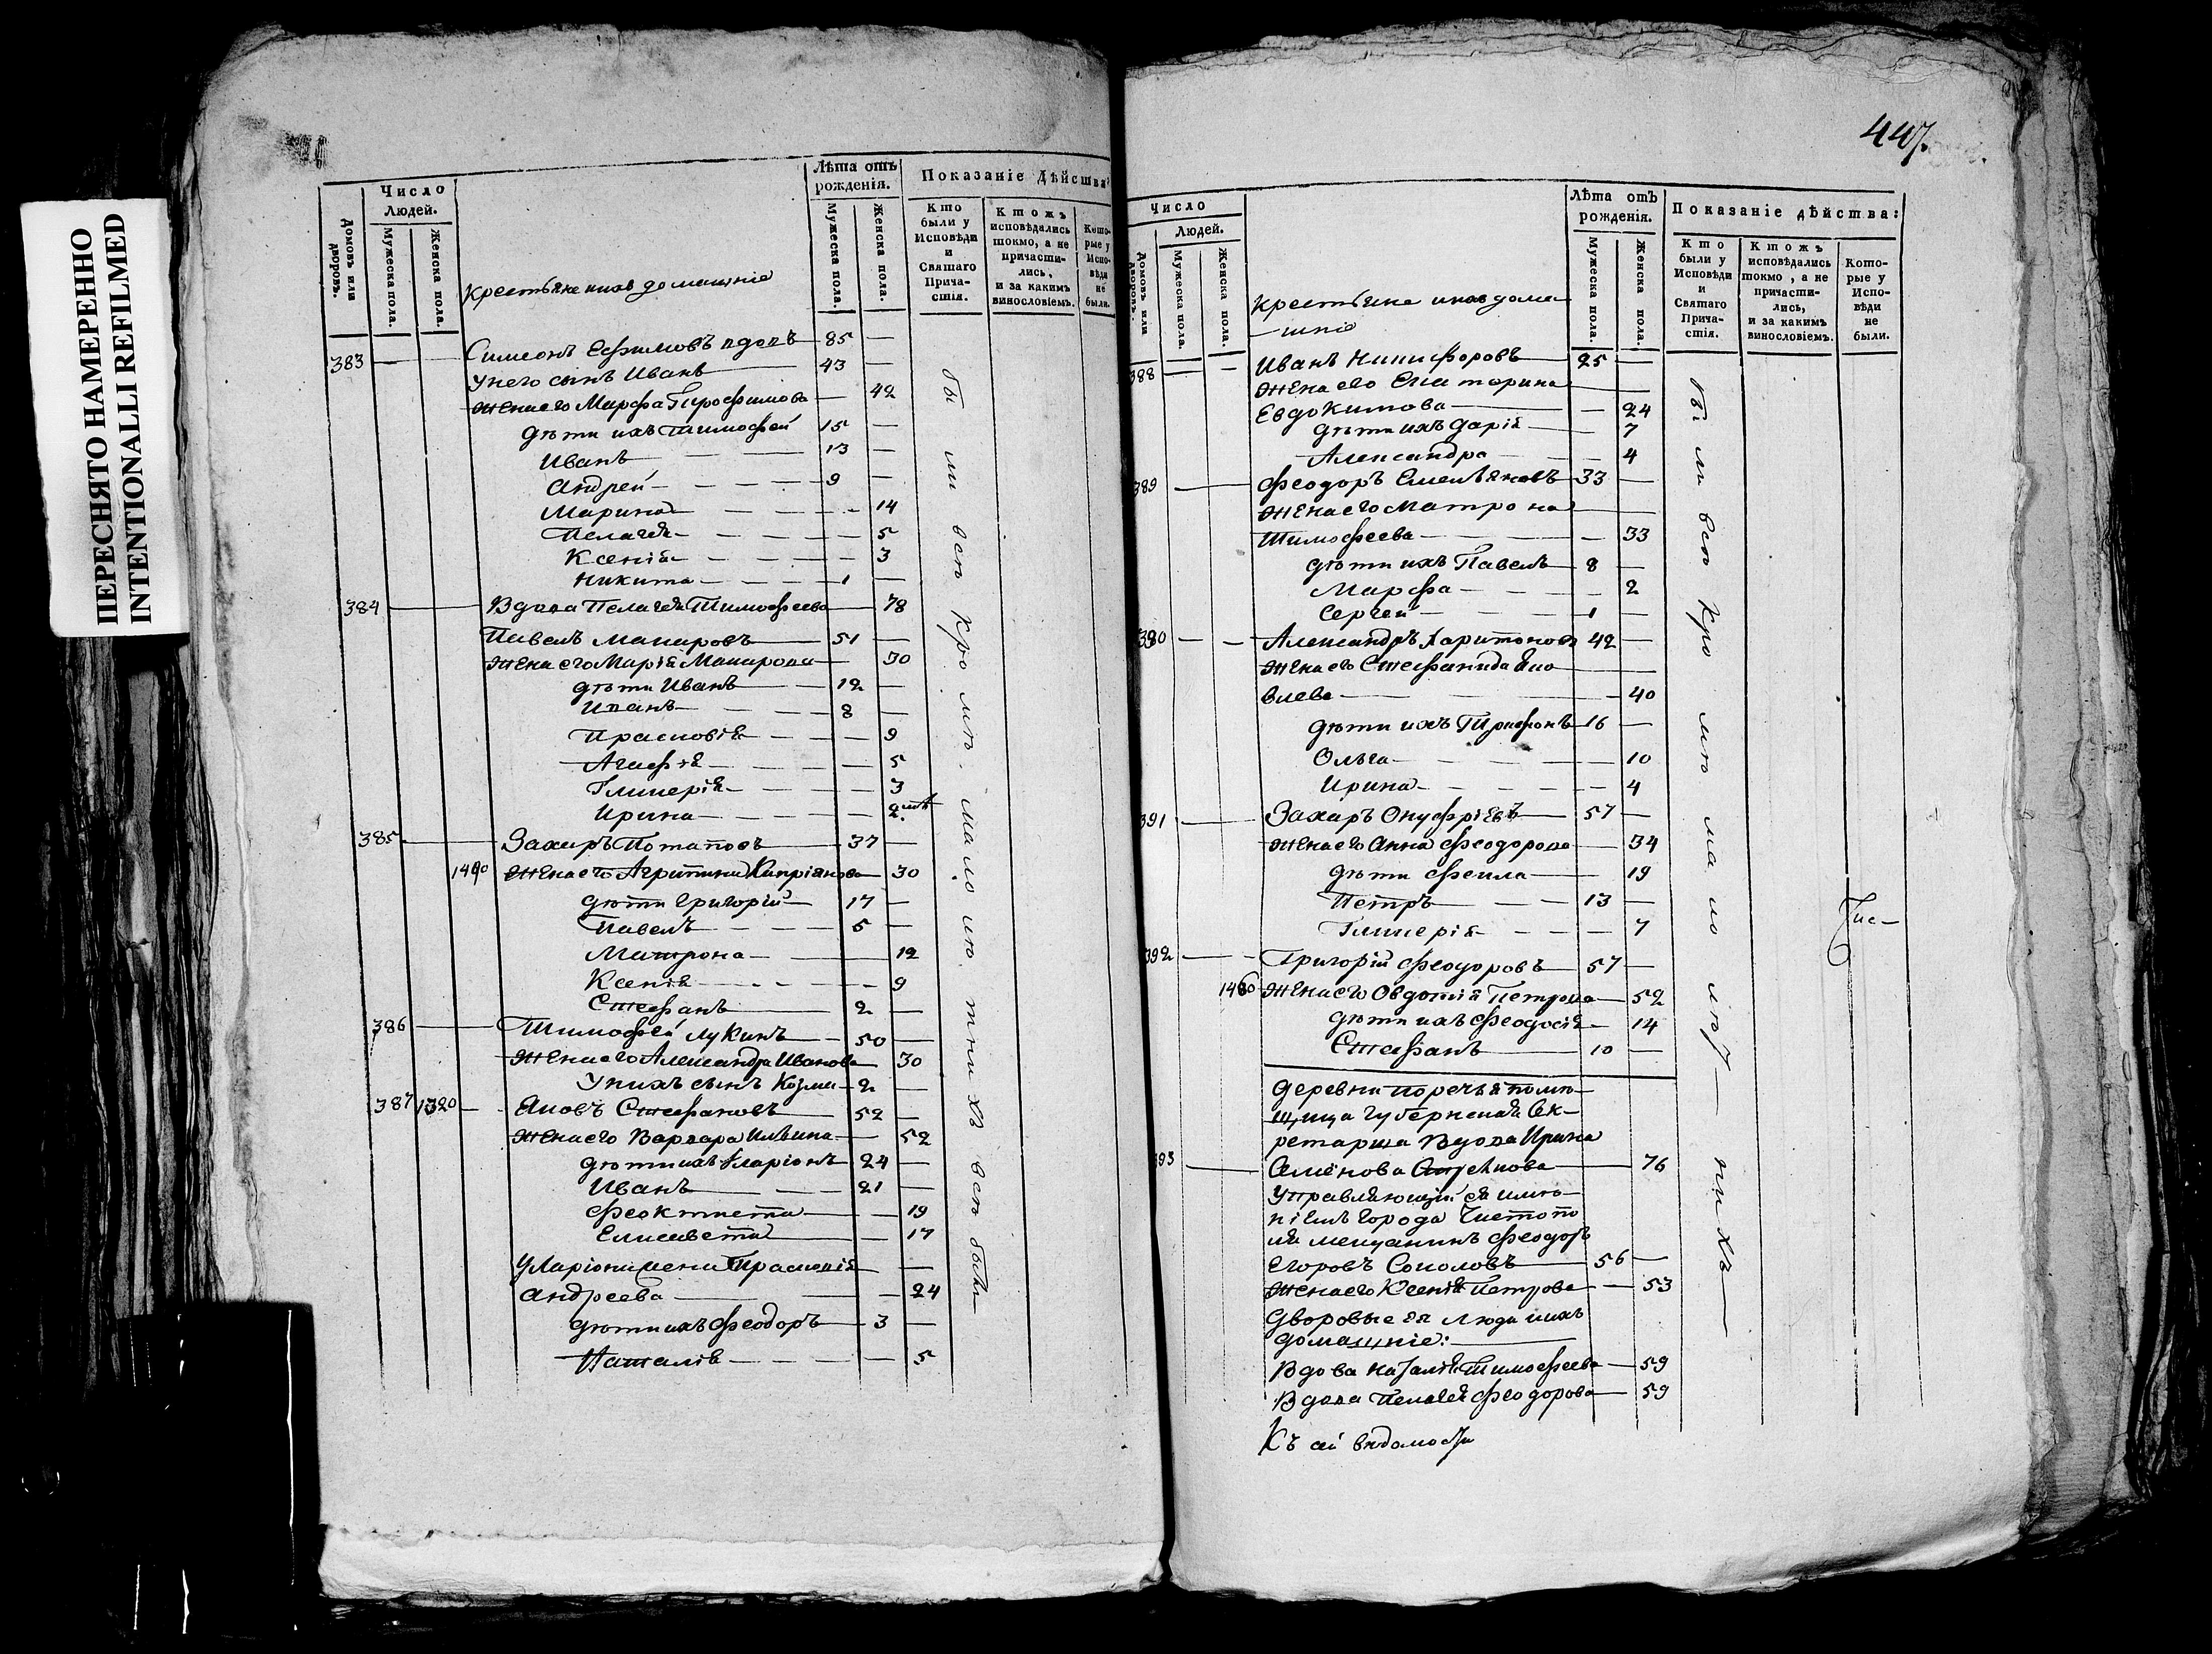 ПЕРЕСНЯТО НАМЕРЕННО
INTENTIONALLI REFILMED
Число
Людей.
Домовъ или дворовъ.
Мужеска пола.
Женска пола.
Крестьяне и ихъ домашніе
Лѣта отъ рожденія.
Мужеска пола.
Женска пола.
Показаніе дѣйства:
Кто были у Исповѣди и Святаго Прича-стія.
Ктожъ исповѣдались токмо, а не причасти-лись, и за какимъ винословіемъ.
Кото-рые у Испо-вѣди не были.
383 — — Симеонъ Ефимовъ вдовъ 85 —
У него сынъ Иванъ 43
Жена его Марфа Трофимова — 42
дѣти ихъ Тимофей 15 —
Иванъ — — 13 —
Андрей — — — 9 —
Марина — — — 14
Пелагея — — — 5
Ксенія — — — 3
Никита — — — 1 —
384 — Вдова Пелагея Тимофеева — 78
Павелъ Макаровъ — 51 —
Жена его Марія Макарова — 30
дѣти Иванъ — 12 —
Иванъ — 8 —
Прасковія — — — 9
Агафія — — — 5
Гликерія — — — 3
Ирина — — — 2
385 — Захаръ Потаповъ — 37 —
Жена его Агрипина Кипріянова — 30
дѣти Григорій — 17 —
Павелъ — — — 5 —
Матрона — — 12
Ксенія — — — 9
Стефанъ — 2 —
386 — Тимофей Лукинъ — 50 —
Жена его Александра Иванова — 30
У нихъ сынъ Козма — 2 —
387 1320 — Яковъ Стефановъ — 52 —
Жена его Варвара Ильина — 52
дѣти ихъ Иларіонъ — 24 —
Иванъ — — 21 —
Феоктиста — — 19
Елисавета — 17
У Ларіона жена Прасковія — —
Андреева — — 24
дѣти ихъ Феодоръ — 3 —
Наталія — — — 5
были всѣ кромѣ малолѣтнихъ всѣ были
447.
Число
Людей.
Домовъ или дворовъ.
Мужеска пола.
Женска пола.
Крестьяне и ихъ дома-
шніе
Лѣта отъ рожденія.
Мужеска пола.
Женска пола.
Показаніе дѣйства:
Кто были у Исповѣди и Святаго Прича-стія.
Ктожъ исповѣдались токмо, а не причасти-лись, и за какимъ винословіемъ.
Кото-рые у Испо-вѣди не были.
388 — — Иванъ Никифоровъ — 25 —
Жена его Екатерина —
Евдокимова — — 24
дѣти ихъ Дарія — — 7
Александра — — 4
389 — Феодоръ Емельяновъ 33 —
Жена его Матрона —
Тимофеева — — 33
дѣти ихъ Павелъ 8 —
Марфа — — 2
Сергей — — 1 —
390 — — Александръ Харитоновъ 42 —
Жена его Стефанида Яко
влева — — 40
дѣти ихъ Трифонъ 16 —
Ольга — — — 10
Ирина — — — 4
391 — Захаръ Онуфріевъ — 57 —
Жена его Анна Феодорова — 34
дѣти Фекла — 19
Петръ — — 13 —
Гликерія — — — 7
392 — — Григорій Феодоровъ — 57 —
Жена его Овдотія Петрова — 52
дѣти ихъ Феодосія — 14
Стефанъ — 10 —
Деревни Поречья помѣ
щица Губернская Сек-
ретарша Вдова Ирина
393 — Семенова — 76
Управляющій ея имѣ-
ніемъ города Чистопо
ля мещанинъ Феодоръ
Егоровъ Соколовъ — 56 —
Жена его Ксенія Петрова — 53
Дворовые ея люди и ихъ
домашніе: —
Вдова Наталія Тимофеева — 59
Вдова Пелагея Феодорова — 59
были всѣ кромѣ малолѣтнихъ
Къ сей вѣдомости